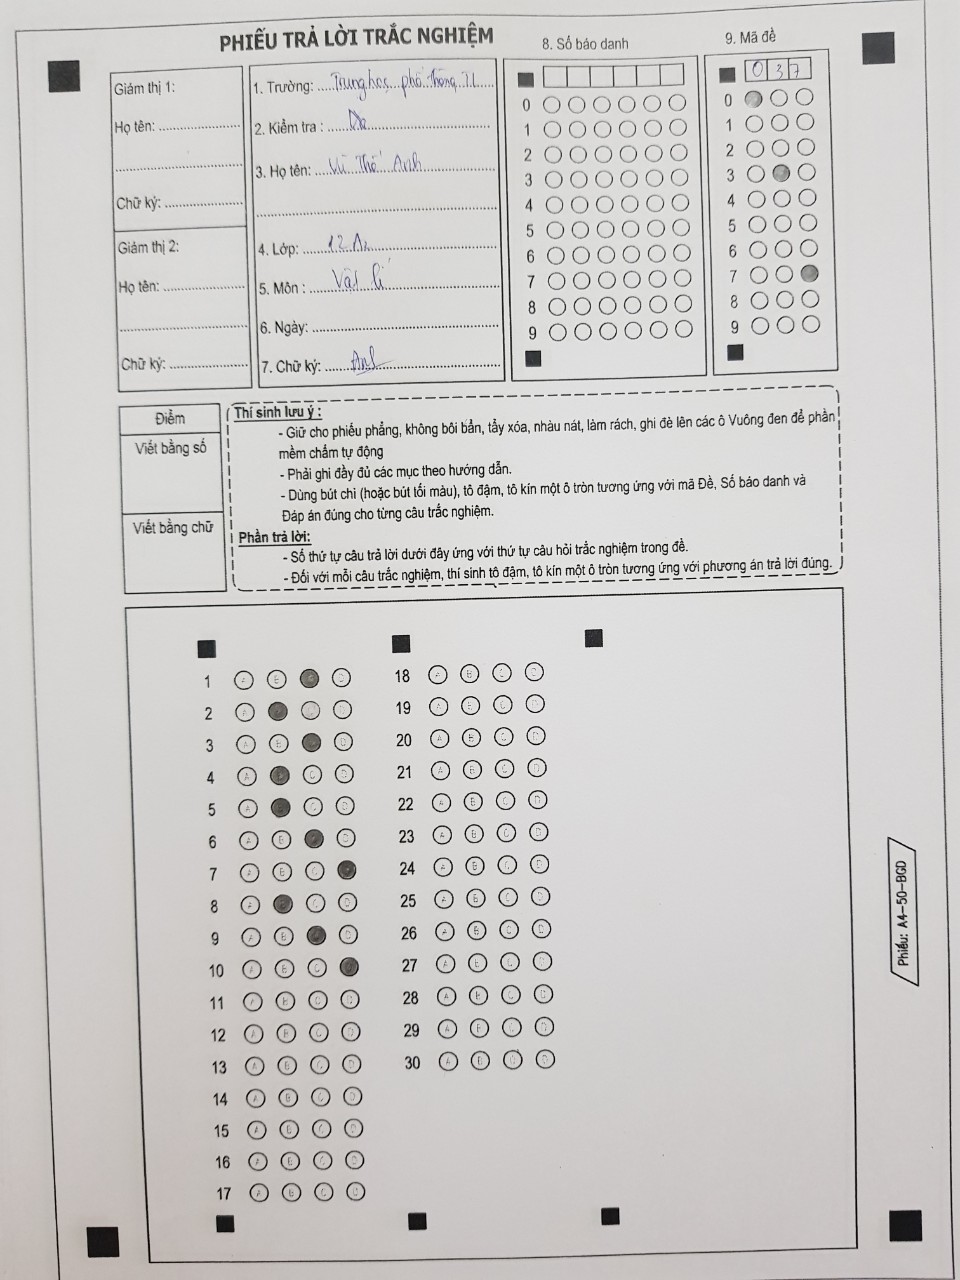 PHIẾU TRẢ LỜI TRẮC NGHIỆM
8. Số báo danh
9. Mã đề
037
Giám thị 1:
Họ tên:
Chữ ký:
Giám thị 2:
Họ tên:
Chữ ký:
1. Trường: Trung học phổ thông
2. Kiểm tra :
3. Họ tên: Vũ Thế Anh
4. Lớp: 12A1
5. Môn : Vật lí
6. Ngày:
7. Chữ ký: Anh
0
1
2
3
4
5
6
7
8
9
0
1
2
3
4
5
6
7
8
9
Điểm
Viết bằng số
Viết bằng chữ
Thí sinh lưu ý :
- Giữ cho phiếu phẳng, không bôi bẩn, tẩy xóa, nhàu nát, làm rách, ghi đè lên các ô Vuông đen để phần
mềm chấm tự động
- Phải ghi đầy đủ các mục theo hướng dẫn.
- Dùng bút chì (hoặc bút tối màu), tô đậm, tô kín một ô tròn tương ứng với mã Đề, Số báo danh và
Đáp án đúng cho từng câu trắc nghiệm.
Phần trả lời:
- Số thứ tự câu trả lời dưới đây ứng với thứ tự câu hỏi trắc nghiệm trong đề.
- Đối với mỗi câu trắc nghiệm, thí sinh tô đậm, tô kín một ô tròn tương ứng với phương án trả lời đúng.
1 A B D
2 A C D
3 A B D
4 A C D
5 A C D
6 A B D
7 A B C
8 A C D
9 A B D
10 A B C
11 A B C D
12 A B C D
13 A B C D
14 A B C D
15 A B C D
16 A B C D
17 A B C D
18 A B C D
19 A B C D
20 A B C D
21 A B C D
22 A B C D
23 A B C D
24 A B C D
25 A B C D
26 A B C D
27 A B C D
28 A B C D
29 A B C D
30 A B C D
Phiếu: A4-50-BGD